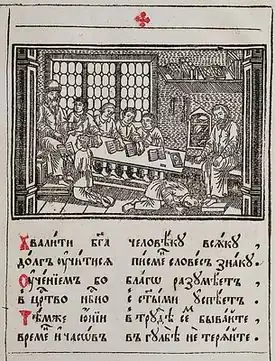 Хвалити бг҃а человѣку всѧку ,
долгъ оучитисѧ писменъ словесъ знаку .
Оученїемъ бо благѡ разумѣетъ ,
в црⷭ҇тво нбⷭ҇но с ст҃ыми успѣетъ .
Тѣмже юнїи в трудѣ сѐмъ бывайте ,
времѧ и часѡвъ въ гульбѣ не терѧйте .